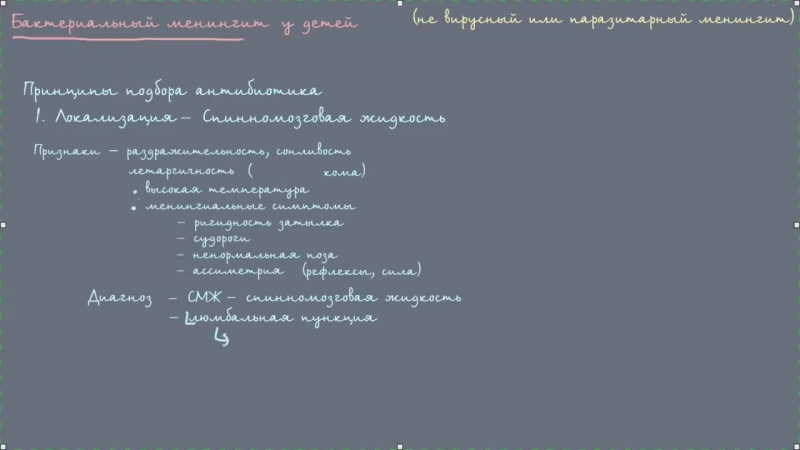 Бактериальный менингит у детей
(не вирусный или паразитарный менингит)
Принципы подбора антибиотика
1. Локализация – Спинномозговая жидкость
Признаки – раздражительность, сонливость
летаргичность ( кома)
• высокая температура
• менингиальные симптомы
– ригидность затылка
– судороги
– ненормальная поза
– ассиметрия (рефлексы, сила)
Диагноз – СМЖ – спинномозговая жидкость
– люмбальная пункция